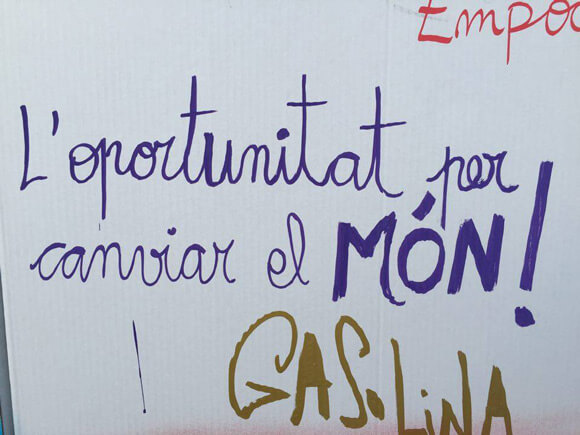 Empo
L'oportunitat per
canviar el MÓN!
GASOLINA